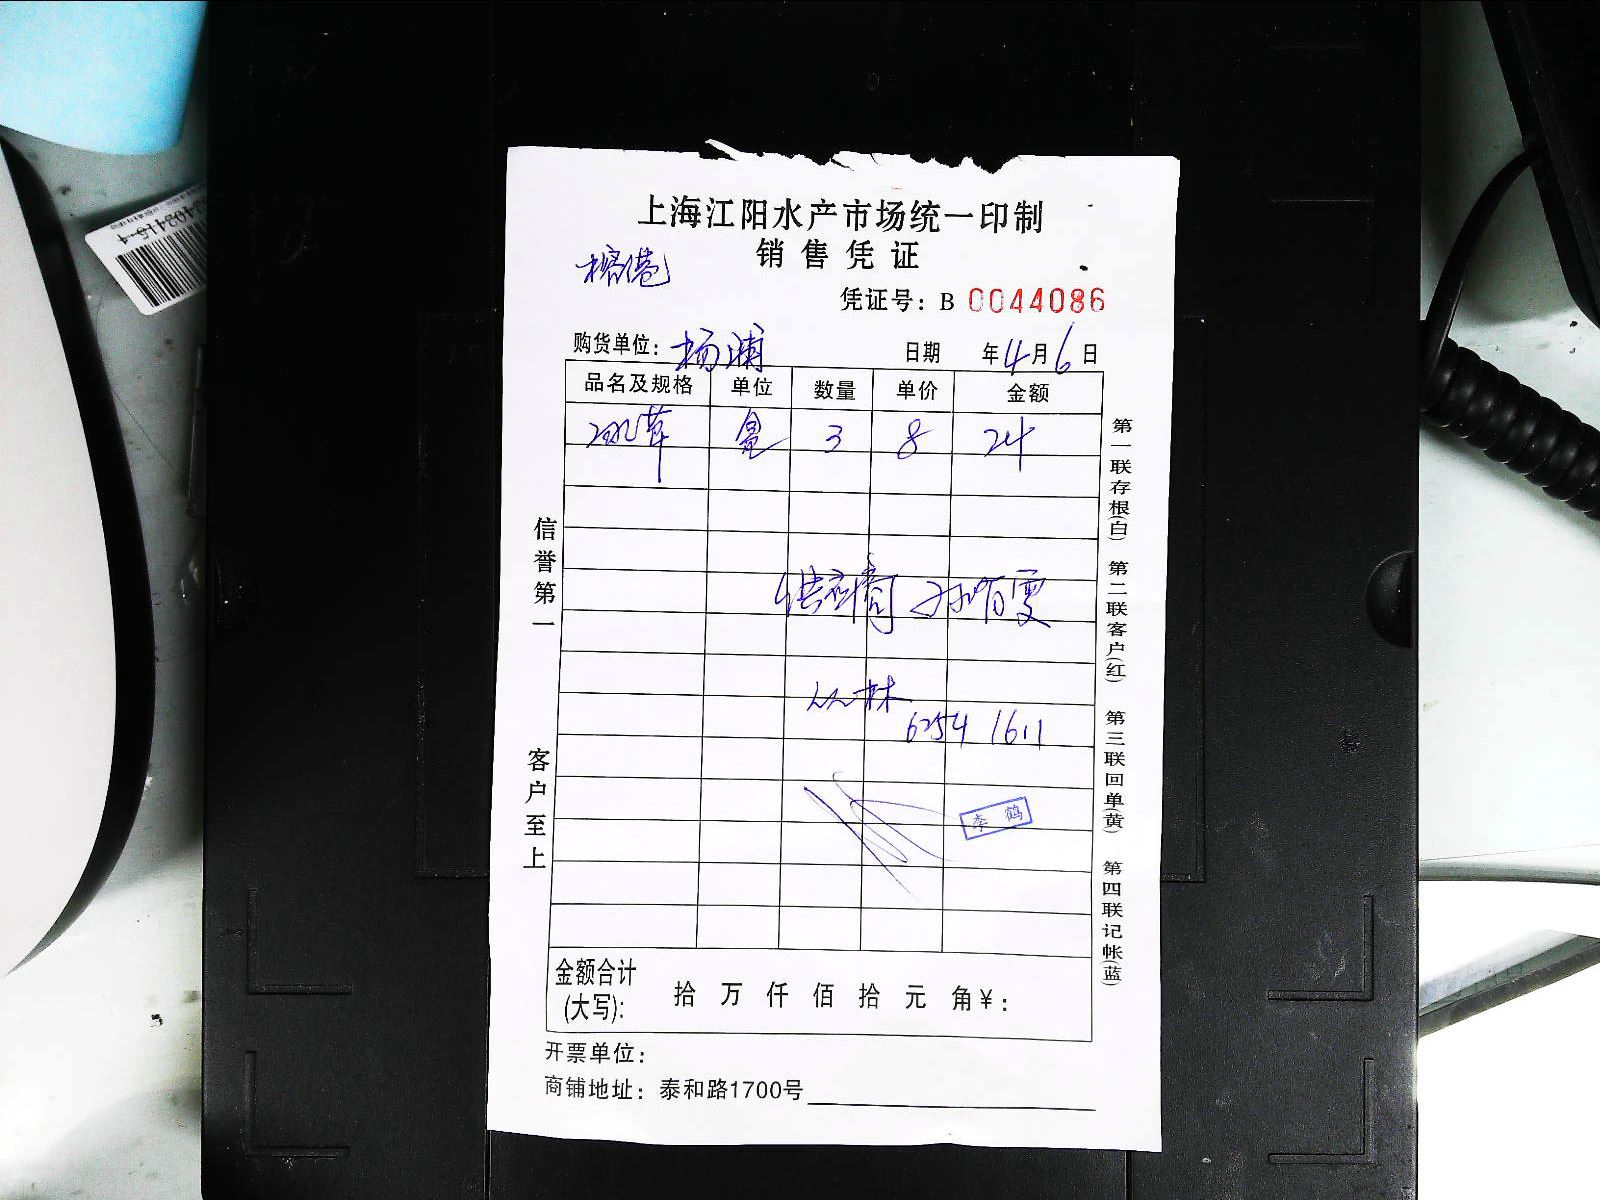 上海江阳水产市场统一印制
销售凭证
凭证号：B 0044086
购货单位：杨浦 日期 年4月6日
品名及规格 单位 数量 单价 金额
盒 3 8 24
供应商 孙有雯
林
6254 1611
李鹤
金额合计(大写)： 拾 万 仟 佰 拾 元 角￥：
开票单位：
商铺地址：泰和路1700号
信誉第一 客户至上
第一联存根(白) 第二联客户(红) 第三联回单(黄) 第四联记帐(蓝)